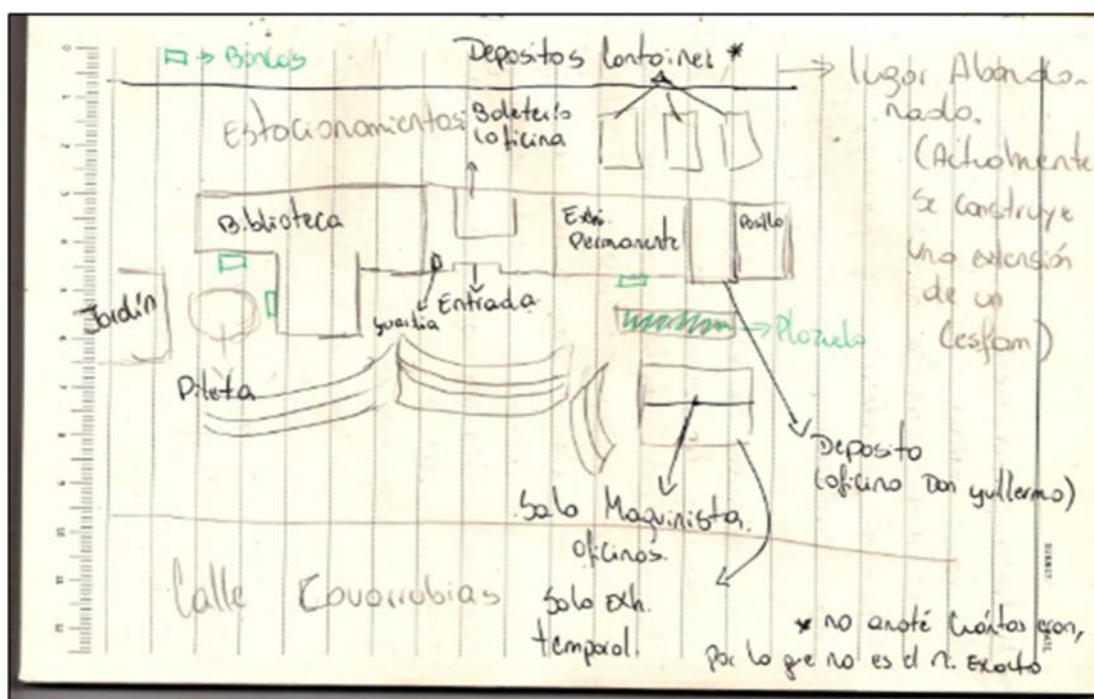 → Bancas
Depositos Container *
→ lugar Abando-
nado.
(Actualmente
se construye
una extensión
de un
Cesfam)
Estacionamientos
Boletería
(oficina
Biblioteca
Exhi.
Permanente
Pasillo
Jardín
guardia
Entrada
→ Plazuela
Pileta
Deposito
(oficina Don Guillermo)
Sala Maquinista.
oficinas.
Sala Exh.
temporal.
Calle Covarrubias
* no anoté cuántos eran,
por lo que no es el n. Exacto
0
1
2
3
5
6
7
8
9
10
11
12